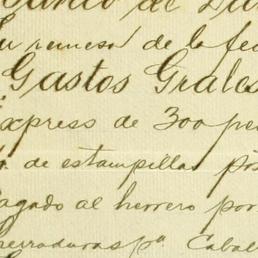 de
su remesa de la fec
Gastos Grales
Express de 300 pe
de estampillas pos
Pagado al herrero por
herraduras pª Cabal